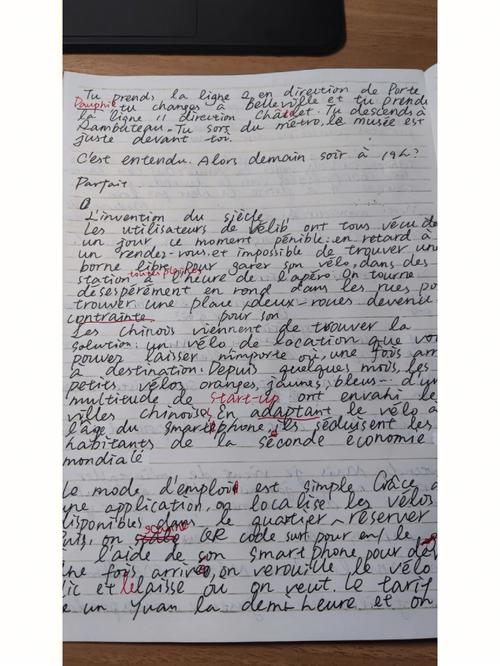 Tu prends la ligne 2 en direction de Porte
Dauphine tu changes à Belleville et tu prends
la ligne 11 direction Châtelet. Tu descends à
Rambuteau. Tu sors du métro, le musée est
juste devant toi.
C'est entendu. Alors demain soir à 19h?
Parfait.
L'invention du siècle
Les utilisateurs de Vélib' ont tous vécu
un jour ce moment pénible: en retard à
un rendez-vous et impossible de trouver une
borne libre pour garer son vélo, dans des
station toutes pleines à l'heure de l'apéro. On tourne
désespérément en rond dans les rues po
trouver une place, deux-roues devenu
contrainte. pour son
Les chinois viennent de trouver la
solution: un vélo de location que vo
pouvez laisser n'importe où, une fois arr
à destination. Depuis quelques mois, les
petits vélos oranges, jaunes, bleus... d'un
multitude de start-up ont envahi le
villes chinoises. En adaptant le vélo à
l'âge du smartphone, ils séduisent les
habitants de la seconde économie
mondiale
Le mode d'emploi est simple Grâce à
une application, on localise les vélos
disponibles dans le quartier, réserver
uis, on scanne QR code sur le
à l'aide de son smartphone pour dé
ne fois arrivé, on verouille le vélo
lic et le laisse où on veut. le tarif
e un Yuan la demi heure et on